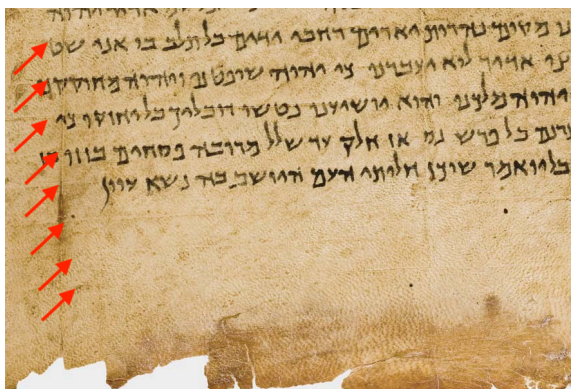 מקום נהרות יארים רחבי ידים בל תלך בו אני שט
צי אדיר לוא יעברנו כי יהוה שופטנו ויהוה מחוקקנו
יהוה מלכנו והוא יושיענו נטשו חבליך בל יחזקו כן
בל פרש נס אז חלק עד שלל מרובה פסחים בזזו
בל יואמר שוכן חליתי העם היושב בה נשא עוון